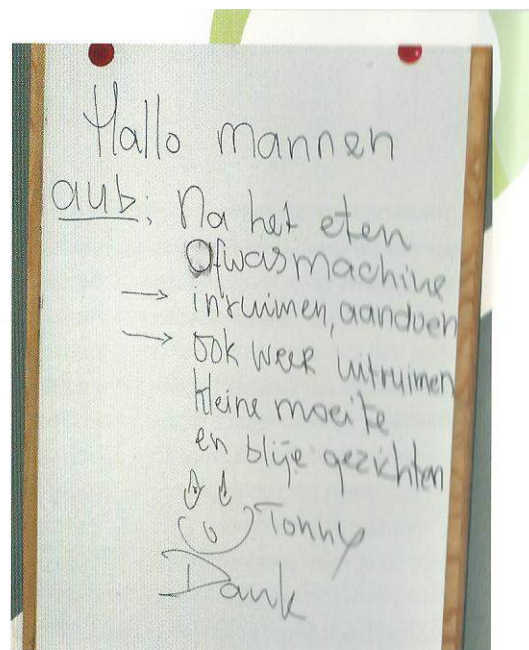 Hallo mannen
aub: Na het eten
Afwasmachine
→ inruimen, aandoen
→ ook weer uitruimen
kleine moeite
en blije gezichten
Tonny
Dank